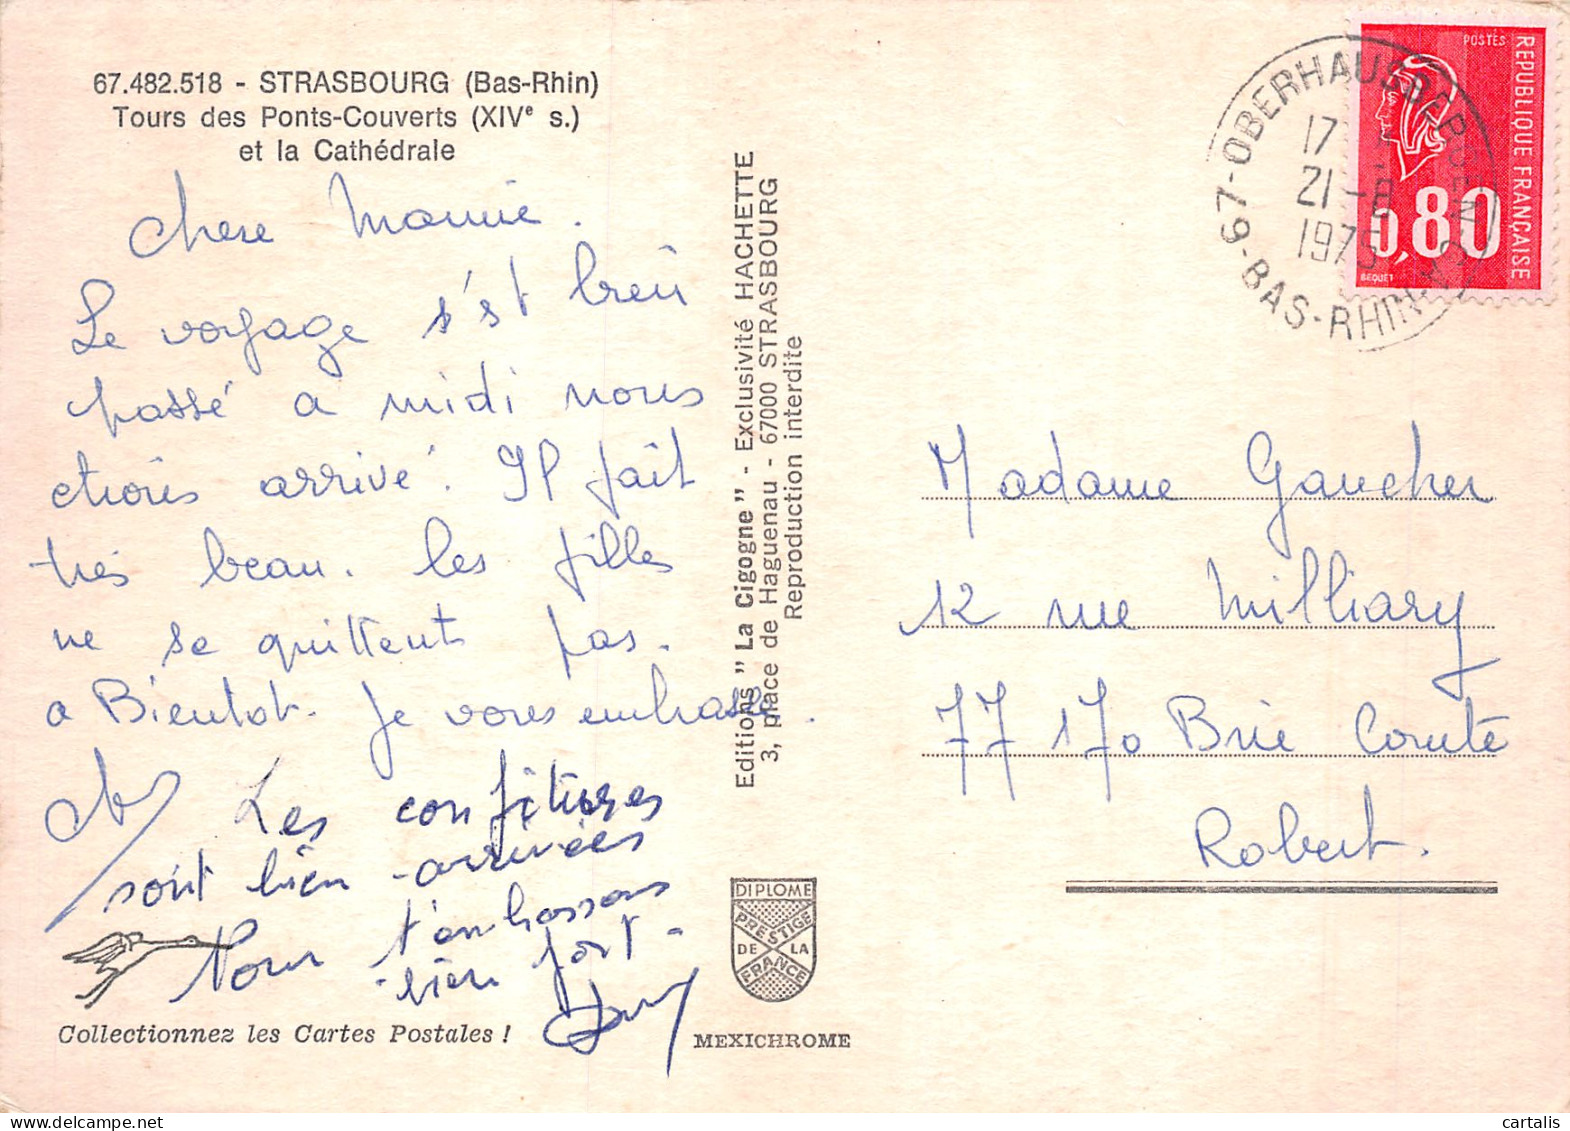 67.482.518 - STRASBOURG (Bas-Rhin)
Tours des Ponts-Couverts (XIVe s.)
et la Cathédrale
chere Mamie.
Le voyage s'st bien
passé a midi nous
etions arrivé. Il fait
très beau. les filles
ne se quittent pas.
a Bientot. Je vous embrasse.
Les confitures
sont bien arrivées
Nous t'embrassons
bien fort.
Collectionnez les Cartes Postales !
Editions "La Cigogne" - Exclusivité HACHETTE
3, place de Haguenau - 67000 STRASBOURG
Reproduction interdite
DIPLOME
PRESTIGE
DE LA
FRANCE
MEXICHROME
POSTES
REPUBLIQUE FRANÇAISE
0,80
BEQUET
67-OBERHAUSBERGEN
17
21-8
1975
BAS-RHIN
Madame Gaucher
12 rue Milliary
77170 Brie Comte
Robert.